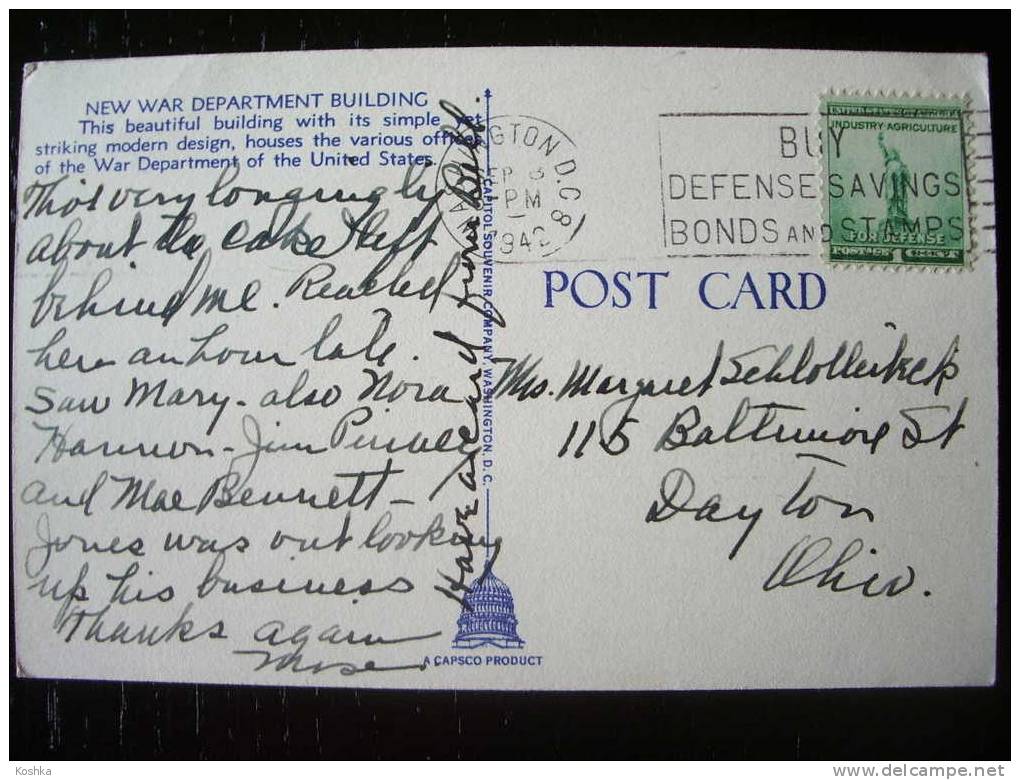 NEW WAR DEPARTMENT BUILDING
This beautiful building with its simple yet
striking modern design, houses the various offices
of the War Department of the United States.
very longingly
about the cake I left
behind me. Reached
here an hour late.
Saw Mary - also Nora
Hannon - Jim
and Mae Bennett -
Jones was out looking
up his business
Thanks again
Have a card from
CAPITOL SOUVENIR COMPANY, WASHINGTON, D. C.
A CAPSCO PRODUCT
WASHINGTON, D.C.
SEP 8
PM
1942
BUY
DEFENSE SAVINGS
BONDS AND STAMPS
INDUSTRY·AGRICULTURE
FOR DEFENSE
POST CARD
Mrs. Margaret
115 Baltimore St
Dayton
Ohio.
Koshka
delcampe.net